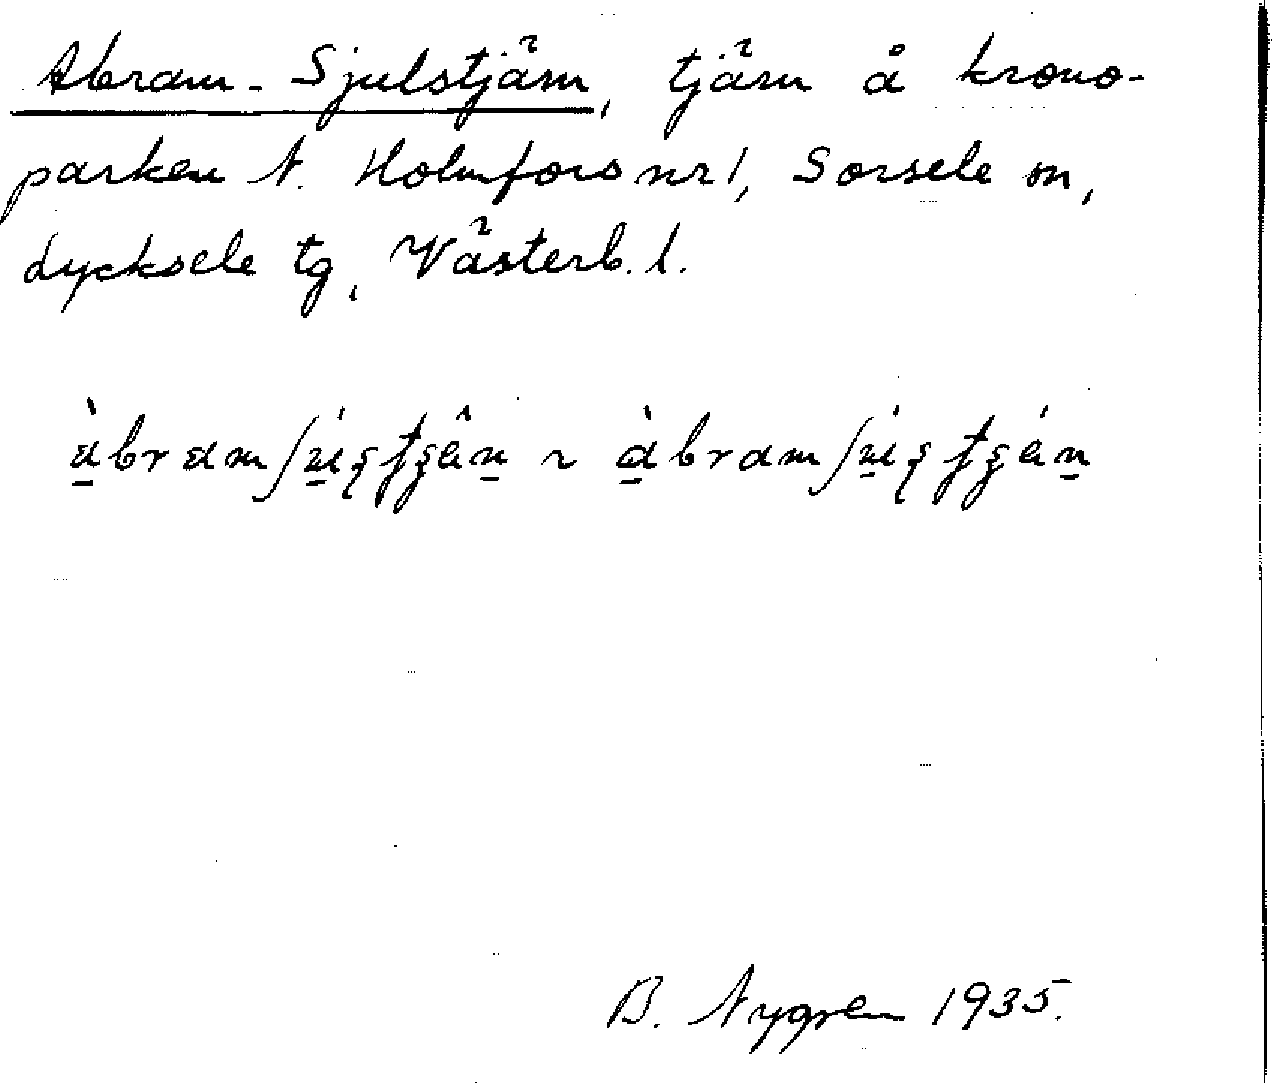 Abram-Sjulstjärn, tjärn å krono-
parken N. Holmfors nr 1, Sorsele sn,
Lycksele tg, Västerb. l.
B. Nygren 1935.